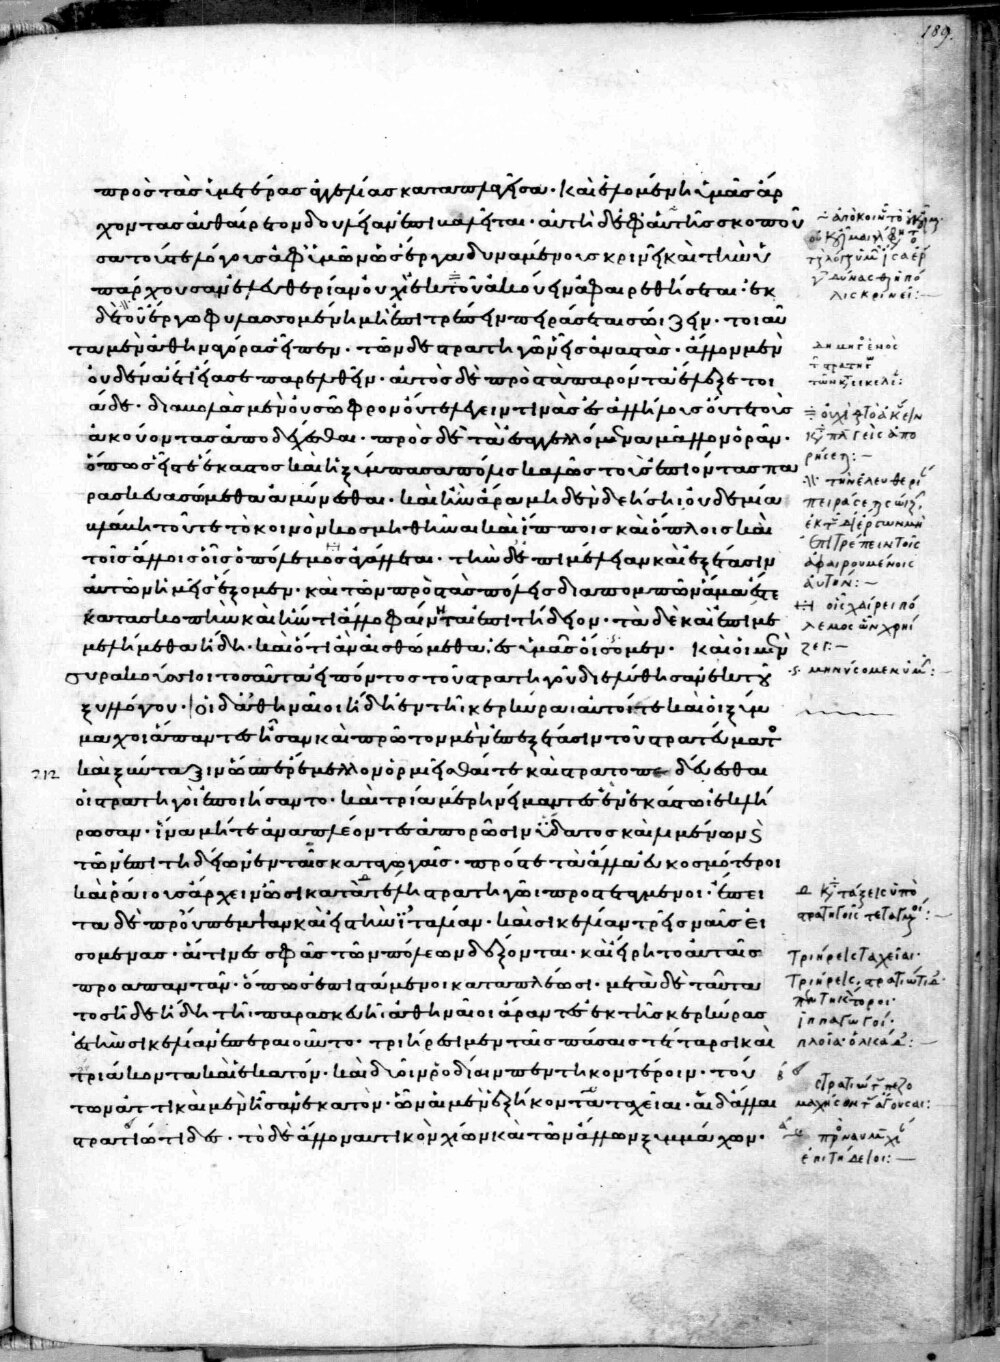 189.
πρὸς τὰς ὑμετέρας ἀγγελίας καταπλαγεῖσα· καὶ ἑλομένη ὑμᾶς ἄρ
χοντας αὐθαίρετον δουλείαν ἐπιβαλεῖται· αὐτὴ δ' ἐφ' αὑτῆς σκοποῦ
σα τούς τε λόγους ἀφ' ὑμῶν ὡς ἔργα δυναμένους κρινεῖ καὶ τὴν ὑ
πάρχουσαν ἐλευθερίαν οὐχὶ ἐκ τοῦ ἀκούειν ἀφαιρεθήσεται· ἐκ
δὲ τοῦ ἔργω φυλασσομένη μὴ ἐπιτρέπειν πειράσεται σώιζειν· τοιαῦ
τα μὲν ἀθηναγόρας εἶπεν· τῶν δὲ στρατηγῶν εἷς ἀναστὰς· ἄλλον μὲν
οὐδένα ἔτι εἴασε παρελθεῖν· αὐτὸς δὲ πρὸς τὰ παρόντα ἔλεξε τοι
άδε· διαβολὰς μὲν οὐ σῶφρον οὔτε λέγειν τινὰς ἐς ἀλλήλους οὔτε τοὺς
ἀκούοντας ἀποδέχεσθαι· πρὸς δὲ τὰ ἐσαγγελλόμενα μᾶλλον ὁρᾶν·
ὅπως εἷς τε ἕκαστος καὶ ἡ ξύμπασα πόλις καλῶς τοὺς ἐπιόντας πα
ρασκευασόμεθα ἀμύνεσθαι· καὶ ἢν ἄρα μηδὲν δεήσηι οὐδεμία
βλάβη τοῦ τε τὸ κοινὸν κοσμηθῆναι καὶ ἵπποις καὶ ὅπλοις καὶ
τοῖς ἄλλοις οἷς ὁ πόλεμος ἀγάλλεται· τὴν δ' ἐπιμέλειαν καὶ ἐξέτασιν
αὐτῶν ἡμεῖς ἕξομεν· καὶ τῶν πρὸς τὰς πόλεις διαπομπῶν ἅμα ἔς τε
κατασκοπὴν καὶ ἤν τι ἄλλο φαίνηται ἐπιτήδειον· τὰ δὲ καὶ ἐπιμε
μελήμεθα ἤδη· καὶ ὅτι ἂν αἰσθώμεθα, ἐς ὑμᾶς οἴσομεν· καὶ οἱ μὲν
συρακόσιοι τοσαῦτα εἰπόντος τοῦ στρατηγοῦ διελύθησαν ἐκ τοῦ
ξυλλόγου· οἱ δ' ἀθηναῖοι ἤδη ἐν τῆι κερκύραι αὐτοί τε καὶ οἱ ξύμ
μαχοι ἅπαντες ἦσαν· καὶ πρῶτον μὲν ἐπεξέτασιν τοῦ στρατεύματος
212
καὶ ξύνταξιν ὥσπερ ἔμελλον ὁρμιεῖσθαί τε καὶ στρατοπεδεύεσθαι
οἱ στρατηγοὶ ἐποιήσαντο· καὶ τρία μέρη νείμαντες ἓν ἑκάστω ἐκλή
ρωσαν· ἵνα μήτε ἅμα πλέοντες ἀπορῶσιν ὕδατος καὶ λιμένων καὶ
τῶν ἐπιτηδείων ἐν ταῖς καταγωγαῖς· πρός τε τὰ ἄλλα εὐκοσμότεροι
καὶ ῥάιους ἄρχειν ὦσι κατὰ τέλη στρατηγῶι προστεταγμένοι· ἔπει
τα δὲ προὔπεμψαν καὶ ἐς τὴν ἰταλίαν· καὶ σικελίαν τρεῖς ναῦς εἰ
σομένας· αἵτινες σφᾶς τῶν πόλεων δέξονται· καὶ εἴρητο αὐταῖς
προαπαντᾶν· ὅπως ἐπιστάμενοι καταπλέωσι· μετὰ δὲ ταῦτα
τοσῆιδε ἤδη τῆι παρασκευῆι ἀθηναῖοι ἄραντες ἐκ τῆς κερκύρας
ἐς τὴν σικελίαν ἐπεραιοῦντο· τριήρεσι μὲν ταῖς πάσαις τέταρσι καὶ
τριάκοντα καὶ ἑκατόν· καὶ δυοῖν ῥοδίαιν πεντηκοντέροιν· τού
των ἀττικαὶ μὲν ἦσαν ἑκατόν· ὧν αἱ μὲν ἑξήκοντα ταχεῖαι· αἱ δ' ἄλλαι
στρατιώτιδες· τὸ δὲ ἄλλο ναυτικὸν χίων καὶ τῶν ἄλλων ξυμμάχων·
δημηγορία ἑνὸς
τῶν στρατηγῶν
τῶν ἐν σικελίᾳ:
τὴν ἐλευθερίαν
πειράσεται σώιζειν
ἐκ τοῦ δι' ἔργων μὴ
ἐπιτρέπειν τοῖς
ἀφαιρουμένοις
αὐτήν:—
οἷς χαίρει πό
λεμος ὧν χρήι
ζει:—
μηνύσομεν ὑμῖν:—
κατὰ τάξεις ὑπὸ
στρατηγοῖς τεταγμένοι:—
τριήρεις ταχεῖαι·
τριήρεις στρατιώτιδες·
πεντηκόντοροι·
ἱππαγωγοί·
πλοῖα ὁλκάδες:—
στρατιώτας πεζο
μάχους ἄγουσαι:
πρὸς ναυμαχίαν
ἐπιτήδειοι:—